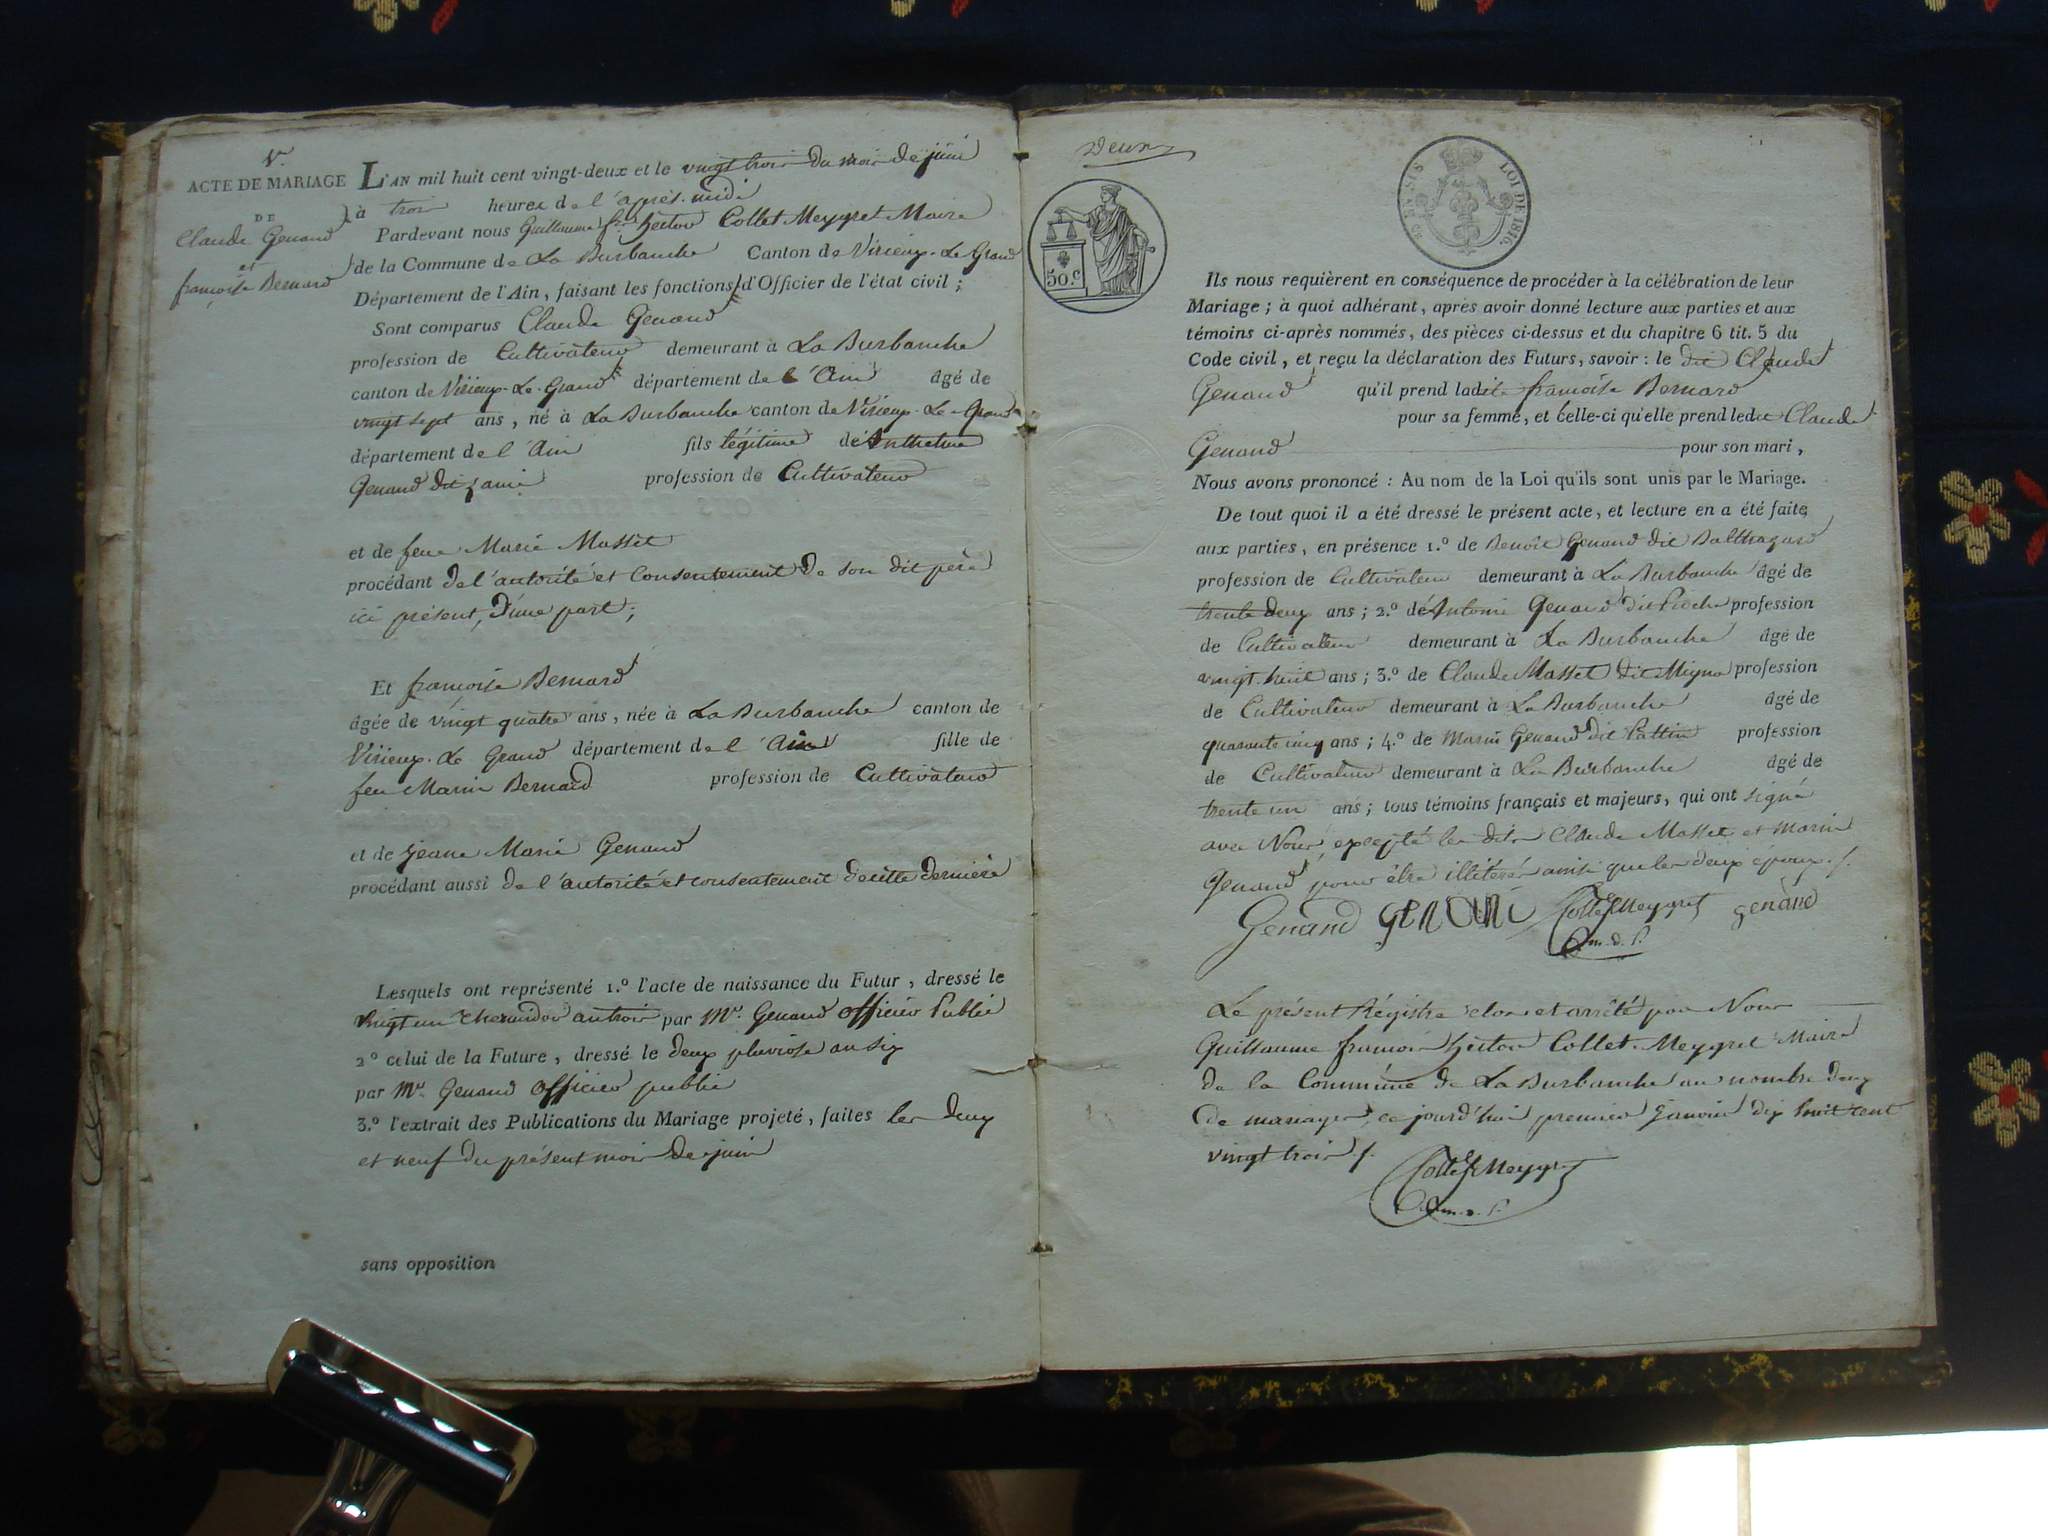 V.
ACTE DE MARIAGE
DE
Claude Genand
et
françoise Bernard
L'AN mil huit cent vingt-deux et le vingt trois du mois de juin
à trois heures de l'après-midi
Pardevant nous Guillaume fçois hector Collet Meygret Maire
de la Commune de La Burbanche Canton de Virieux-Le-Grand
Département de l'Ain, faisant les fonctions d'Officier de l'état civil;
Sont comparus Claude Genand
profession de Cultivateur demeurant à La Burbanche
canton de Virieux-Le-Grand département de l'Ain âgé de
vingt sept ans, né à La Burbanche canton de Virieux-Le-Grand
département de l'Ain fils légitime de Anthelme
Genand dit profession de Cultivateur
et de feue Marie Masset
procédant de l'autorité et Consentement de son dit père
ici présent, D'une part;
Et françoise Bernard
âgée de vingt quatre ans, née à La Burbanche canton de
Virieux-Le Grand département de l'Ain fille de
feu Marin Bernard profession de Cultivateur
et de jeane Marie Genand
procédant aussi de l'autorité et consentement de cette dernière
Lesquels ont représenté 1.º l'acte de naissance du Futur, dressé le
vingt un thermidor an trois par Mr. Genand officier Public
2º celui de la Future, dressé le deux pluviose an six
par Mr. Genand officier public
3.º l'extrait des Publications du Mariage projeté, faites les deux
et neuf du présent mois de juin
sans opposition
Deux
50.c
LOI DE 1816.
Ils nous requièrent en conséquence de procéder à la célébration de leur
Mariage; à quoi adhérant, après avoir donné lecture aux parties et aux
témoins ci-après nommés, des pièces ci-dessus et du chapitre 6 tit. 5 du
Code civil, et reçu la déclaration des Futurs, savoir: le dit Claude
Genand qu'il prend ladite françoise Bernard
pour sa femme, et celle-ci qu'elle prend ledit Claude
Genand pour son mari,
Nous avons prononcé: Au nom de la Loi qu'ils sont unis par le Mariage.
De tout quoi il a été dressé le présent acte, et lecture en a été faite
aux parties, en présence 1.º de Benoît Genand dit Balthazard
profession de Cultivateur demeurant à La Burbanche âgé de
trente deux ans; 2.º de Antoine Genand dit Pioche profession
de Cultivateur demeurant à La Burbanche âgé de
vingt huit ans; 3.º de Claude Masset dit Migno profession
de Cultivateur demeurant à La Burbanche âgé de
quarante cinq ans; 4.º de Marin Genand dit Pattin profession
de Cultivateur demeurant à La Burbanche âgé de
trente un ans; tous témoins français et majeurs, qui ont signé
avec Nous, excepté les dits Claude Masset et Marin
Genand pour être illitérés ainsi que les deux époux./.
Genand GENAND Collet Meygret genand
m. d. l.
Le présent Régistre clos et arrêté par Nous
Guillaume françois hector Collet-Meygret Maire
de la Commune de La Burbanche au nombre deux
de mariages, ce jourd'hui premier janvier dix huit cent
vingt trois./.
Collet Meygret
m. d. l.